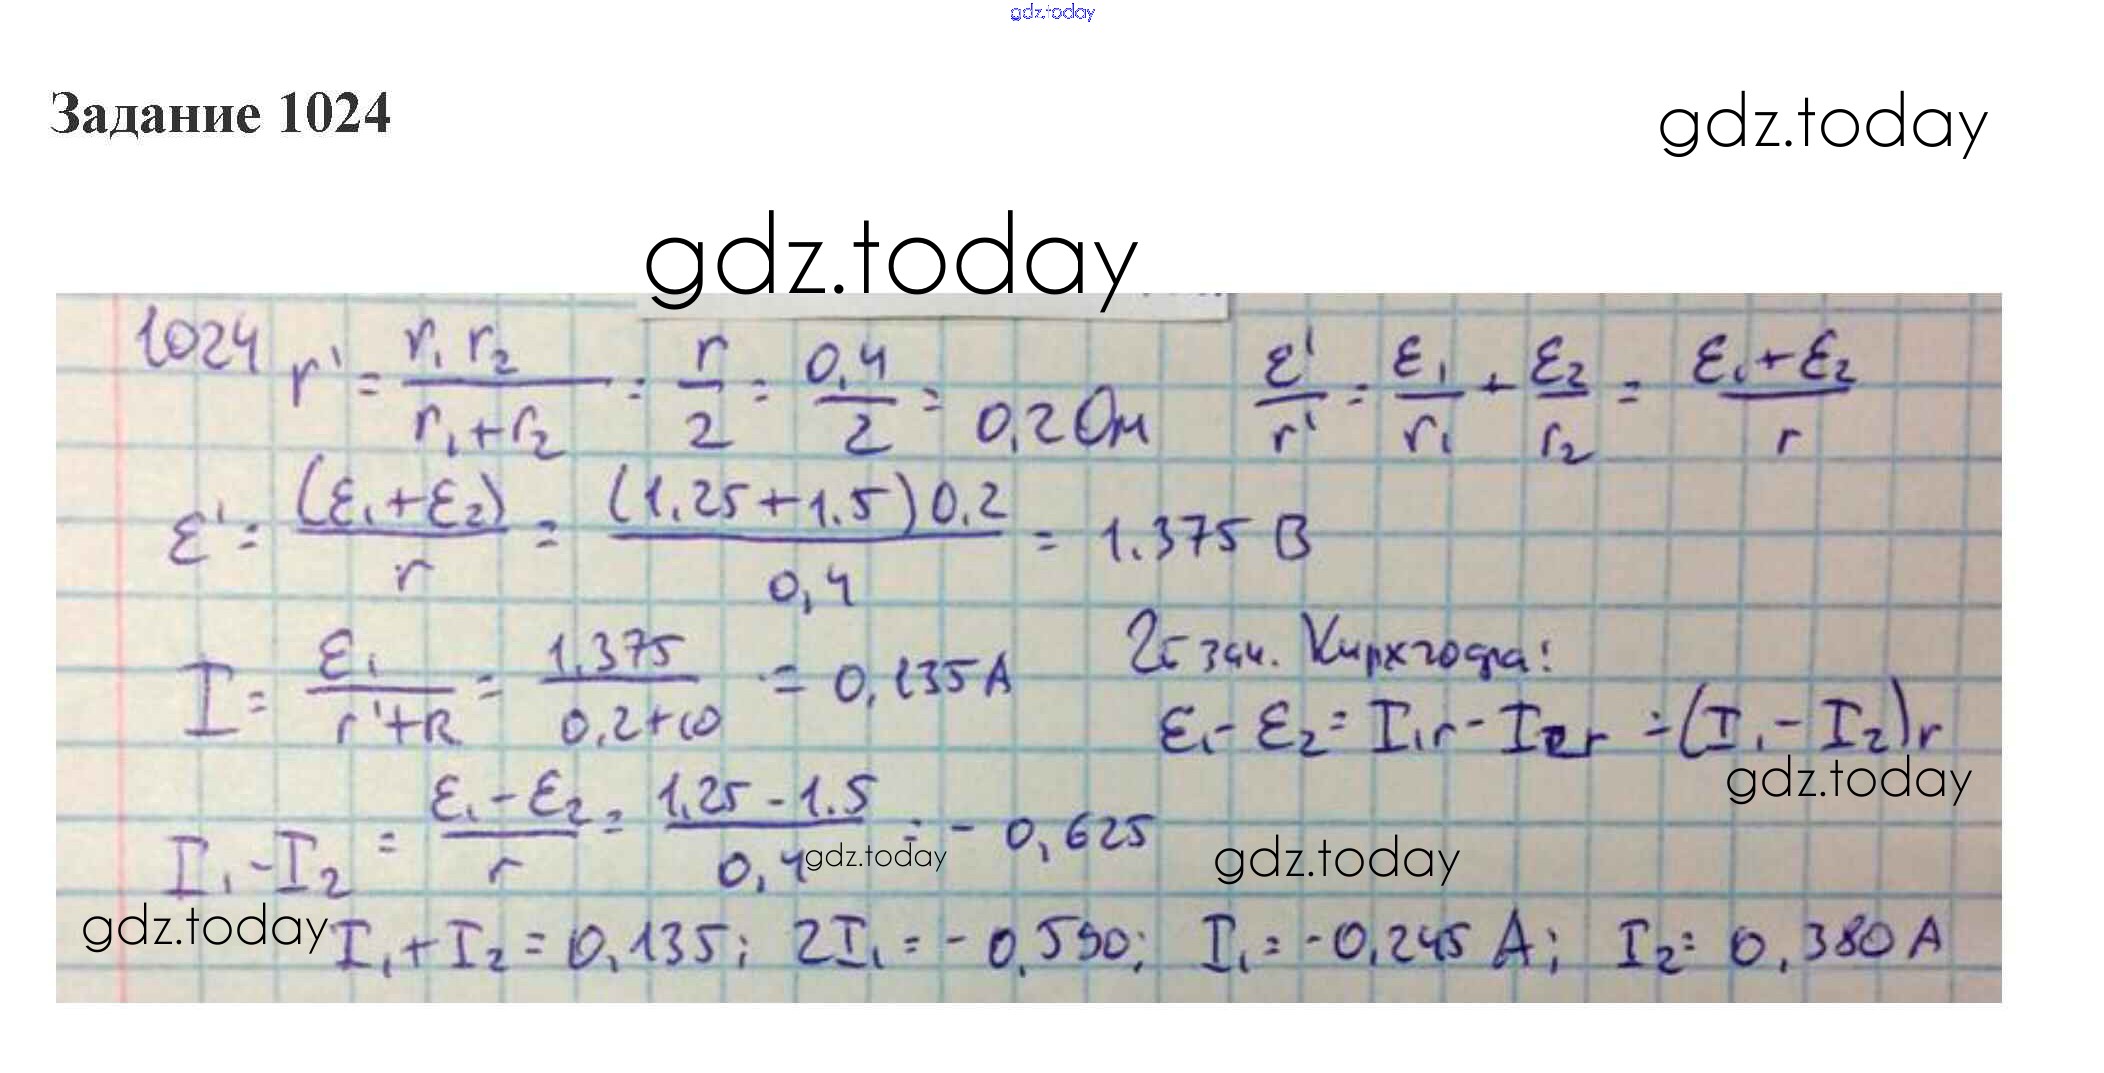 gdz.today
Задание 1024
gdz.today
gdz.today
1024 r' = r₁ r₂ / (r₁ + r₂) = r/2 = 0,4/2 = 0,2 Ом ε'/r' = ε₁/r₁ + ε₂/r₂ = (ε₁ + ε₂)/r
ε' = (ε₁ + ε₂)/r = (1.25 + 1.5) 0,2 / 0,4 = 1.375 В
I = ε₁/(r' + R) = 1,375/(0,2 + 10) = 0,135 А
2й зак. Кирхгофа:
ε₁ - ε₂ = I₁r - I₂r = (I₁ - I₂)r
gdz.today
I₁ - I₂ = (ε₁ - ε₂)/r = (1,25 - 1.5)/0,4 = - 0,625
gdz.today
gdz.today
gdz.today
I₁ + I₂ = 0,135; 2I₁ = - 0,590; I₁ = -0,245 А; I₂ = 0,380 А